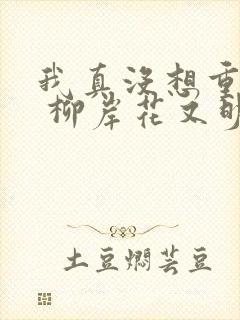 我真没想重
柳岸花又明
土豆焖芸豆